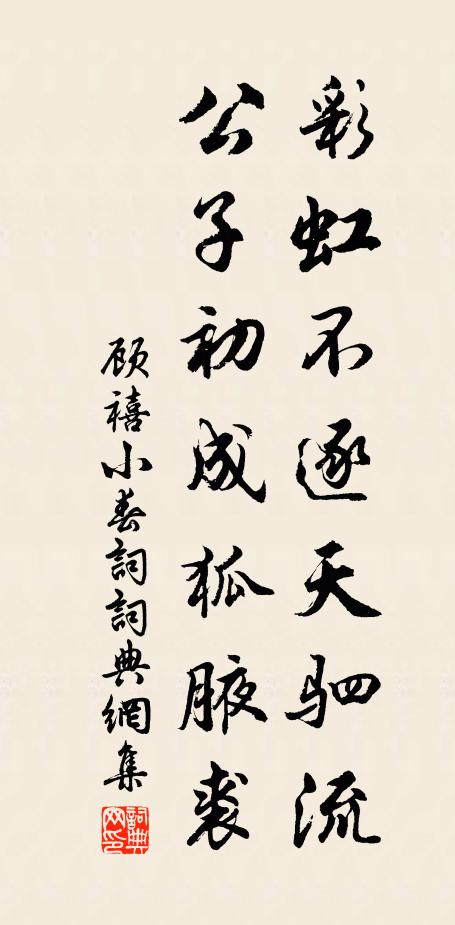 彩虹不逐天驷流
公子初成狐腋裘
顾禧小春詞詞典網集
詞典网印